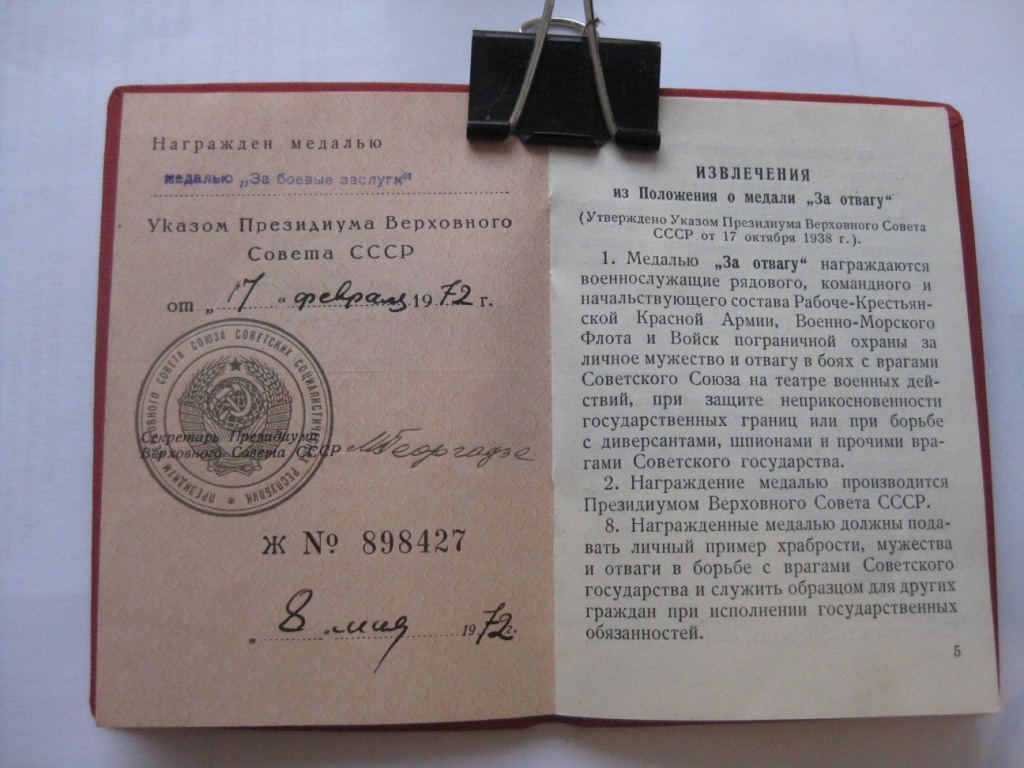 Награжден медалью
медалью „За боевые заслуги"
Указом Президиума Верховного
Совета СССР
от „ 17 " февраля 1972 г.
ПРЕЗИДИУМ ВЕРХОВНОГО СОВЕТА СОЮЗА СОВЕТСКИХ СОЦИАЛИСТИЧЕСКИХ РЕСПУБЛИК
Секретарь Президиума
Верховного Совета СССР М Георгадзе
Ж № 898427
„ 8 " мая 1972 г.
ИЗВЛЕЧЕНИЯ
из Положения о медали „За отвагу"
(Утверждено Указом Президиума Верховного Совета
СССР от 17 октября 1938 г.).
1. Медалью „За отвагу" награждаются
военнослужащие рядового, командного и
начальствующего состава Рабоче-Крестьян-
ской Красной Армии, Военно-Морского
Флота и Войск пограничной охраны за
личное мужество и отвагу в боях с врагами
Советского Союза на театре военных дей-
ствий, при защите неприкосновенности
государственных границ или при борьбе
с диверсантами, шпионами и прочими вра-
гами Советского государства.
2. Награждение медалью производится
Президиумом Верховного Совета СССР.
8. Награжденные медалью должны пода-
вать личный пример храбрости, мужества
и отваги в борьбе с врагами Советского
государства и служить образцом для других
граждан при исполнении государственных
обязанностей.
5